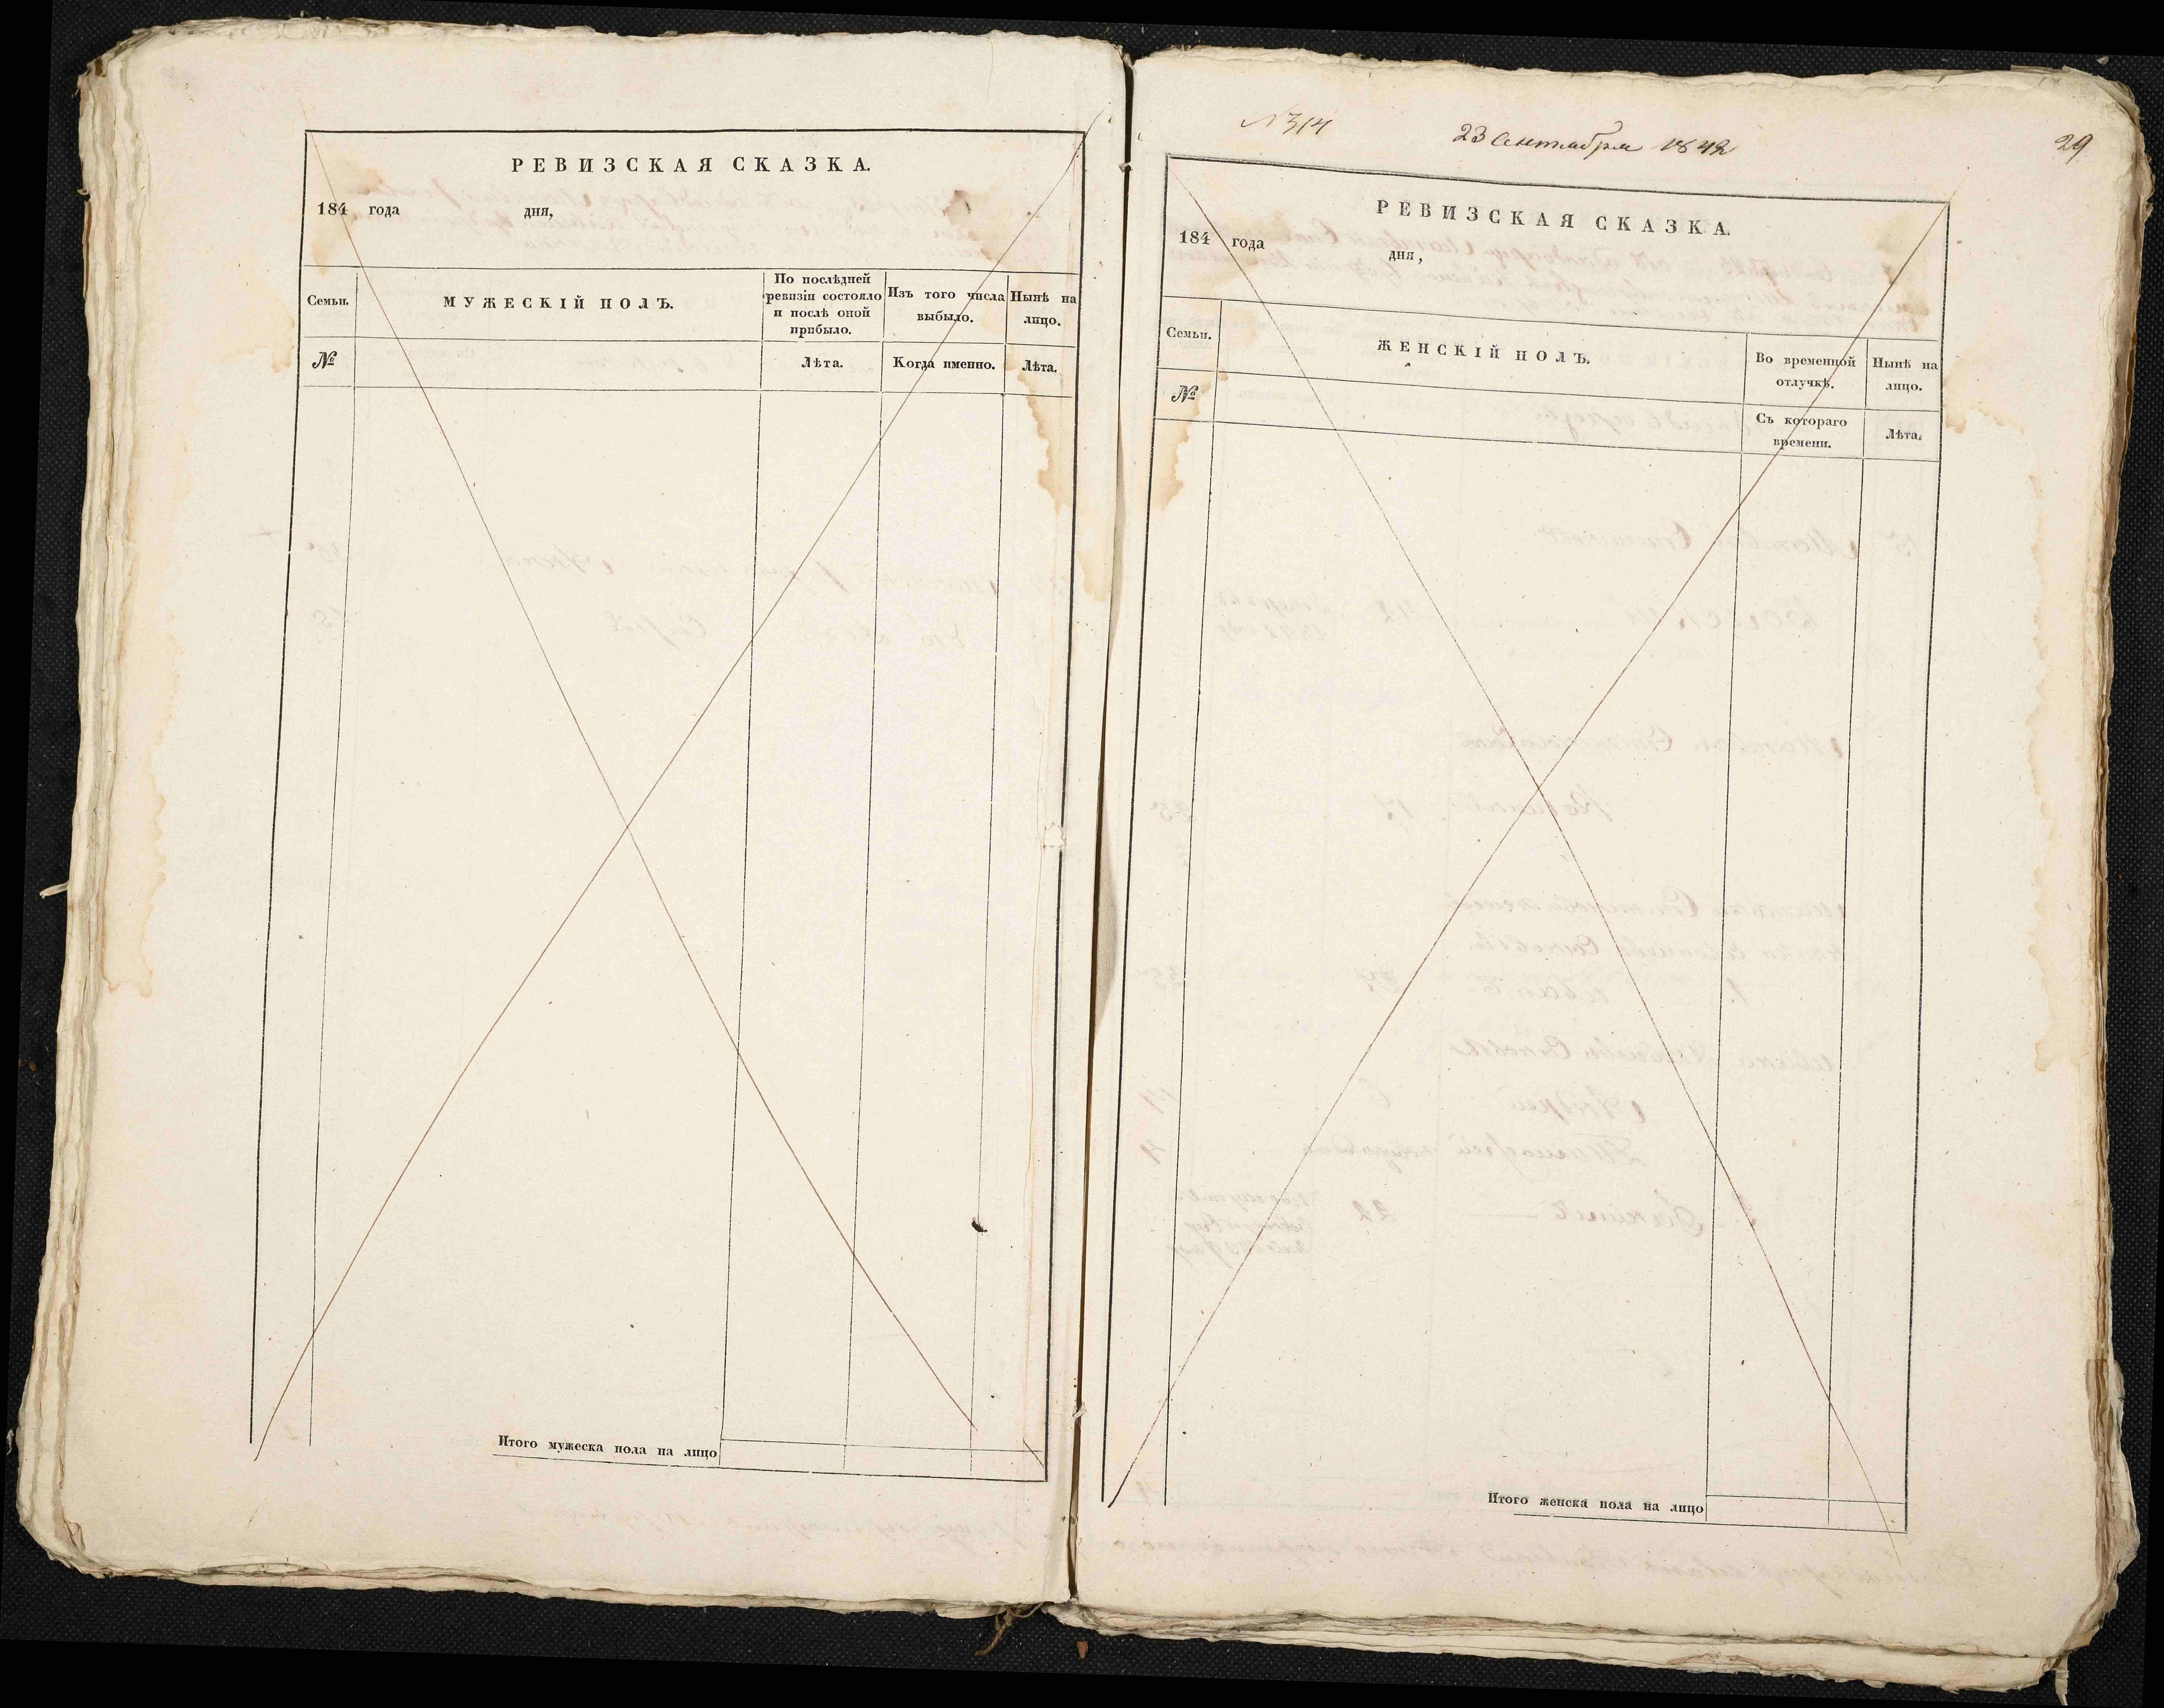 РЕВИЗСКАЯ СКАЗКА.
184 года дня,
Семьи.
МУЖЕСКІЙ ПОЛЪ.
По послѣдней
ревизіи состояло
и послѣ оной
прибыло.
Изъ того числа
выбыло.
Нынѣ на
лицо.
№
Лѣта.
Когда именно.
Лѣта.
Итого мужеска пола на лицо
№ 314
23 Сентября 1842
29
РЕВИЗСКАЯ СКАЗКА.
184 года дня,
Семьи.
ЖЕНСКІЙ ПОЛЪ.
Во временной
отлучкѣ.
Нынѣ на
лицо.
№
Съ котораго
времени.
Лѣта.
Итого женска пола на лицо